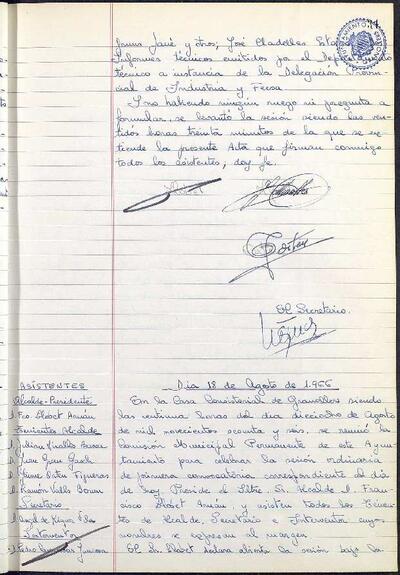 Jaume Jané y otros; José Cladellas
Informes técnicos emitidos por el
técnico a instancia de la Delegación Provin-
cial de Industria y Fecsa
Y no habiendo ningún ruego ni pregunta a
formular, se levantó la sesión siendo las vein-
tidós horas treinta minutos de la que se ex-
tiende la presente Acta que firman conmigo
todos los asistentes, doy fe.
El Secretario.
ASISTENTES
Alcalde-Presidente
Fco Llobet Arnán
Tenientes Alcalde
Juan Grau
Jaume Figueras
Ramón Valls
Secretario
Interventor
Pedro
Día 18 de Agosto de 1.966
En la Casa Consistorial de Granollers siendo
las veintiuna horas del día dieciocho de Agosto
de mil novecientos sesenta y seis, se reunió la
Comisión Municipal Permanente de este Ayun-
tamiento para celebrar la sesión ordinaria
de primera convocatoria correspondiente al día
de hoy. Preside el Iltre. Sr. Alcalde D. Fran-
cisco Llobet Arnán, y asisten todos los Tenien-
tes de Alcalde, Secretario e Interventor cuyos
nombres se expresan al margen
El Sr. Llobet declara abierta la sesión bajo la